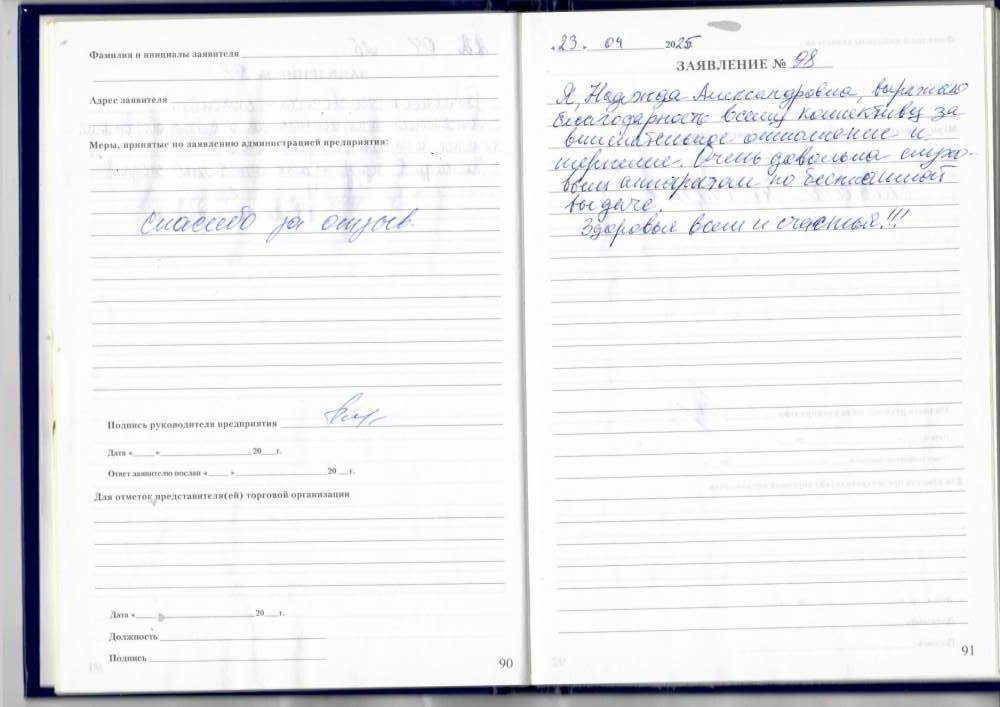 Фамилия и инициалы заявителя
Адрес заявителя
Меры, принятые по заявлению администрацией предприятия:
Спасибо за отзыв.
Подпись руководителя предприятия
Дата «____» ____ 20__г.
Ответ заявителю послан «____» ____ 20__г.
Для отметок представителя(ей) торговой организации
Дата «____ ____ 20__г.
Должность
Подпись
90
«23. 04 2025
ЗАЯВЛЕНИЕ № 98
Я, Надежда Александровна, выражаю
благодарность всему коллективу за
внимательное отношение и
терпение. Очень довольна слухо-
вым аппаратом по бесплатной
выдаче.
Здоровья всем и счастья!!!
91